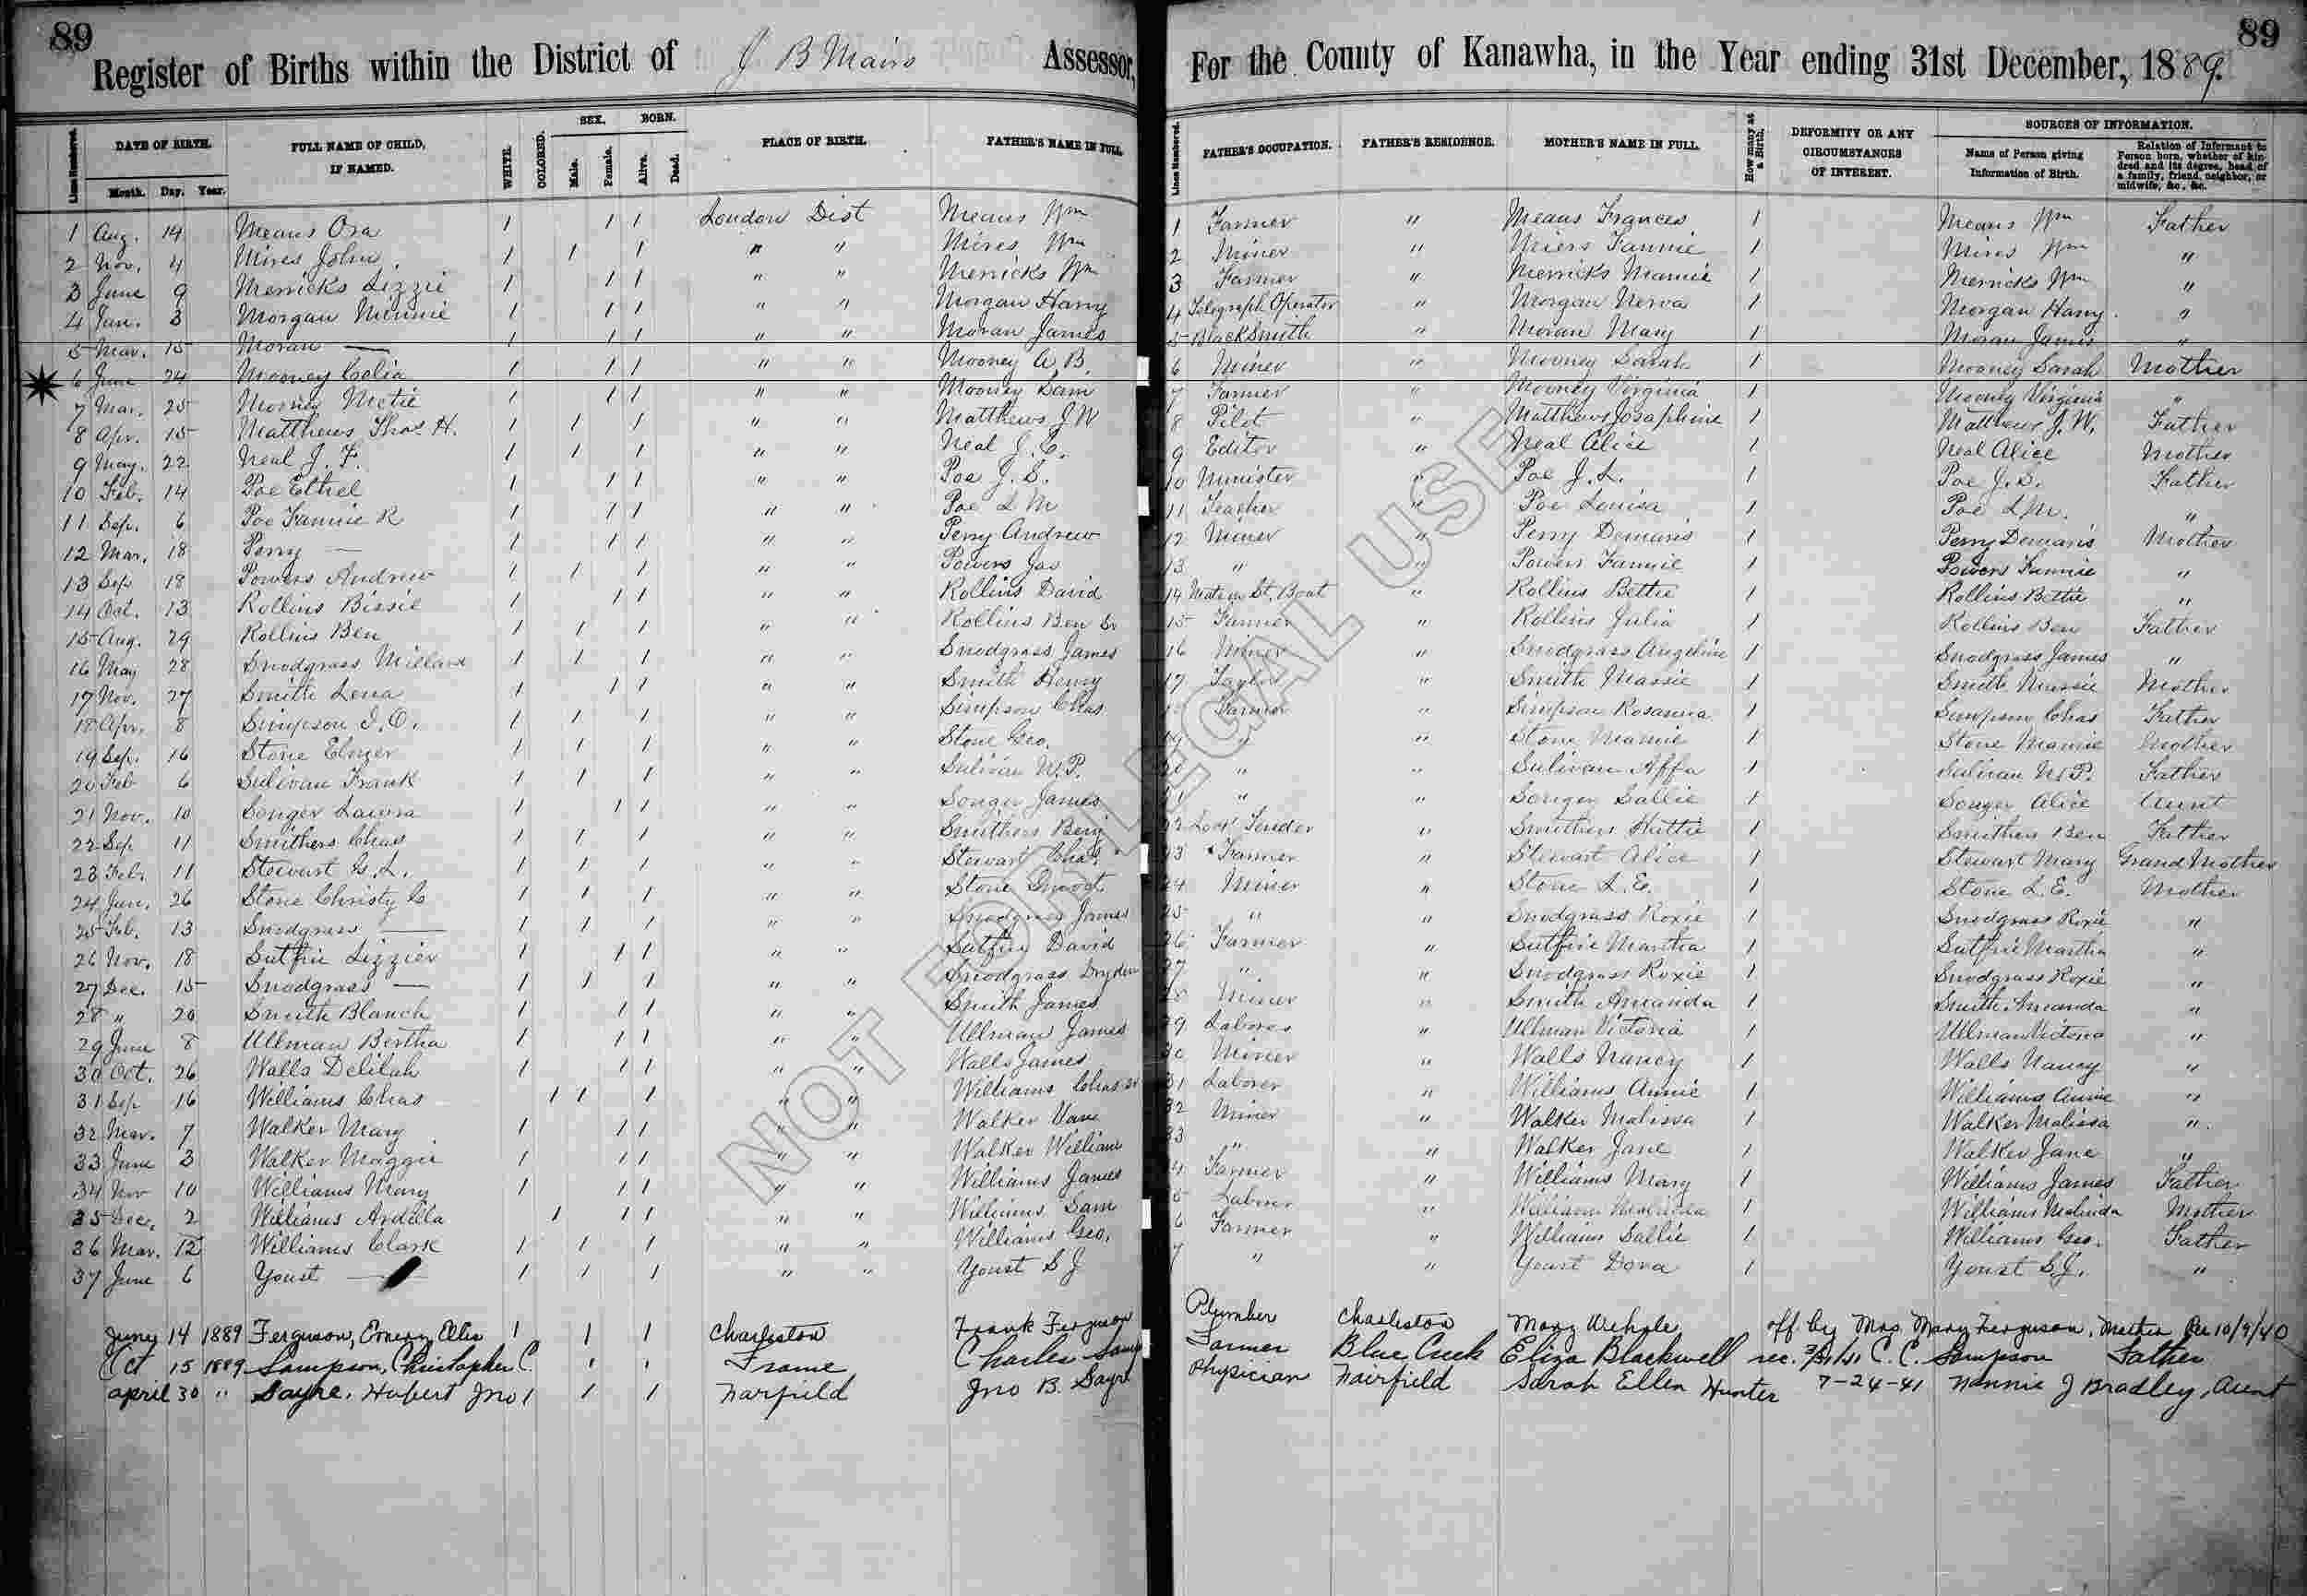 89
89
Register of Births within the District of J B Mairs Assessor,
For the County of Kanawha, in the Year ending 31st December, 1889.
Lines Numbered. DATE OF BIRTH. Month. Day. Year. FULL NAME OF CHILD, IF NAMED. WHITE. COLORED. SEX. Male. Female. BORN. Alive. Dead. PLACE OF BIRTH. FATHER'S NAME IN FULL
Lines Numbered. FATHER'S OCCUPATION. FATHER'S RESIDENCE. MOTHER'S NAME IN FULL. How many at a Birth. DEFORMITY OR ANY CIRCUMSTANCES OF INTEREST. SOURCES OF INFORMATION. Name of Person giving Information of Birth. Relation of Informant to Person born, whether of kindred and its degree, head of a family, friend, neighbor, or midwife, &c., &c.
1 Aug. 14 Means Ora 1 1 1 London Dist Means Wm 1 Farmer " Means Frances 1 Means Wm Father
2 Nov. 4 Mires John 1 1 1 " " Mires Wm 2 Miner " Miers Fannie 1 Mires Wm "
3 June 9 Merricks Lizzie 1 1 1 " " Merricks Wm 3 Farmer " Merricks Mamie 1 Merricks Wm "
4 Jan. 3 Morgan Minnie 1 1 1 " " Morgan Harry 4 Telegraph Operator " Morgan Nerva 1 Morgan Harry "
5 Mar. 15 Moran — 1 1 1 " " Moran James 5 BlackSmith " Moran Mary 1 Moran James "
6 June 24 Mooney Celia 1 1 1 " " Mooney A B. 6 Miner " Mooney Sarah 1 Mooney Sarah Mother
7 Mar. 25 Mooney Metie 1 1 1 " " Mooney Sam 7 Farmer " Mooney Virginia 1 Mooney Virginia "
8 Apr. 15 Matthews Thos H. 1 1 1 " " Matthews J W 8 Pilot " Matthews Josaphine 1 Matthews J. W. Father
9 May. 22 Neal J. F. 1 1 1 " " Neal J. C. 9 Editor " Neal Alice 1 Neal Alice Mother
10 Feb. 14 Poe Ethel 1 1 1 " " Poe J. S. 10 Minister " Poe J. L. 1 Poe J. S. Father
11 Sep. 6 Poe Fannie R 1 1 1 " " Poe L M 11 Teacher " Poe Louisa 1 Poe L M. "
12 Mar. 18 Perry — 1 1 1 " " Perry Andrew 12 Miner " Perry Demaris 1 Perry Demaris Mother
13 Sep 18 Powers Andrew 1 1 1 " " Powers Jas 13 " " Powers Fannie 1 Powers Fannie "
14 Oct. 13 Rollins Bissie 1 1 1 " " Rollins David 14 St. Boat " Rollins Bettie 1 Rollins Bettie "
15 Aug. 29 Rollins Ben 1 1 1 " " Rollins Ben Sr 15 Farmer " Rollins Julia 1 Rollins Ben Father
16 May 28 Snodgrass Millard 1 1 1 " " Snodgrass James 16 Miner " Snodgrass Angeline 1 Snodgrass James "
17 Nov. 27 Smith Lena 1 1 1 " " Smith Henry 17 Taylor " Smith Massie 1 Smith Massie Mother
18 Apr. 8 Simpson I. O. 1 1 1 " " Simpson Chas Farmer " Simpson Rosanna 1 Simpson Chas Father
19 Sep. 16 Stone Elmer 1 1 1 " " Stone Geo. 19 " " Stone Mamie 1 Stone Mamie Mother
20 Feb 6 Sulivan Frank 1 1 1 " " Sulivan W. P. " " Sulivan Affa 1 Sulivan W. P. Father
21 Nov. 10 Songer Laura 1 1 1 " " Songer James " " Songer Sallie 1 Songer Alice Aunt
22 Sep 11 Smithers Chas 1 1 1 " " Smithers Benj 22 Lock Tender " Smithers Hattie 1 Smithers Ben Father
23 Feb. 11 Stewart G. L. 1 1 1 " " Stewart Chas. 23 Farmer " Stewart Alice 1 Stewart Mary Grand Mother
24 Jan. 26 Stone Christy C 1 1 1 " " Stone Smoot 24 Miner " Stone L. E. 1 Stone L. E. Mother
25 Feb. 13 Snodgrass — 1 1 1 " " Snodgrass James 25 " " Snodgrass Roxie 1 Snodgrass Roxie "
26 Nov. 18 Sutfin Lizzie 1 1 1 " " Sutfin David 26 Farmer " Sutfin Martha 1 Sutfin Martha "
27 Dec. 15 Snodgrass — 1 1 1 " " Snodgrass Dryden 27 " " Snodgrass Roxie 1 Snodgrass Roxie "
28 " 20 Smith Blanch 1 1 1 " " Smith James 28 Miner " Smith Amanda 1 Smith Amanda "
29 June 8 Ullman Bertha 1 1 1 " " Ullman James 29 Laborer " Ullman Victoria 1 Ullman Victoria "
30 Oct. 26 Walls Delilah 1 1 1 " " Walls James 30 Miner " Walls Nancy 1 Walls Nancy "
31 Sep 16 Williams Chas 1 1 1 " " Williams Chas Sr 31 Laborer " Williams Annie 1 Williams Annie "
32 Mar. 7 Walker Mary 1 1 1 " " Walker Van 32 Miner " Walker Malissa 1 Walker Malissa "
33 June 3 Walker Maggie 1 1 1 " " Walker William 33 " " Walker Jane 1 Walker Jane "
34 Nov 10 Williams Mary 1 1 1 " " Williams James 4 Farmer " Williams Mary 1 Williams James Father
35 Dec. 2 Williams Ardella 1 1 1 " " Williams Sam 5 Laborer " Williams Malinda 1 Williams Malinda Mother
36 Mar. 12 Williams Clark 1 1 1 " " Williams Geo. 6 Farmer " Williams Sallie 1 Williams Geo. Father
37 June 6 Youst — 1 1 1 " " Youst S J 7 " " Youst Dora 1 Youst S. J. "
June 14 1889 Ferguson, Emery Ellis 1 1 1 Charleston Frank Ferguson Plumber Charleston Mary Wehrle off. by Mrs Mary Ferguson, Mother Rec 10/9/40
Oct 15 1889 Sampson, Christopher C. 1 1 Frame Charles Samp Farmer Blue Creek Eliza Blackwell rec. C. C. Sampson Father
April 30 " Sayre, Hubert Jno 1 1 1 Fairfield Jno B. Sayre Physician Fairfield Sarah Ellen Hunter 7-24-41 Nannie J Bradley, Aunt
NOT FOR LEGAL USE